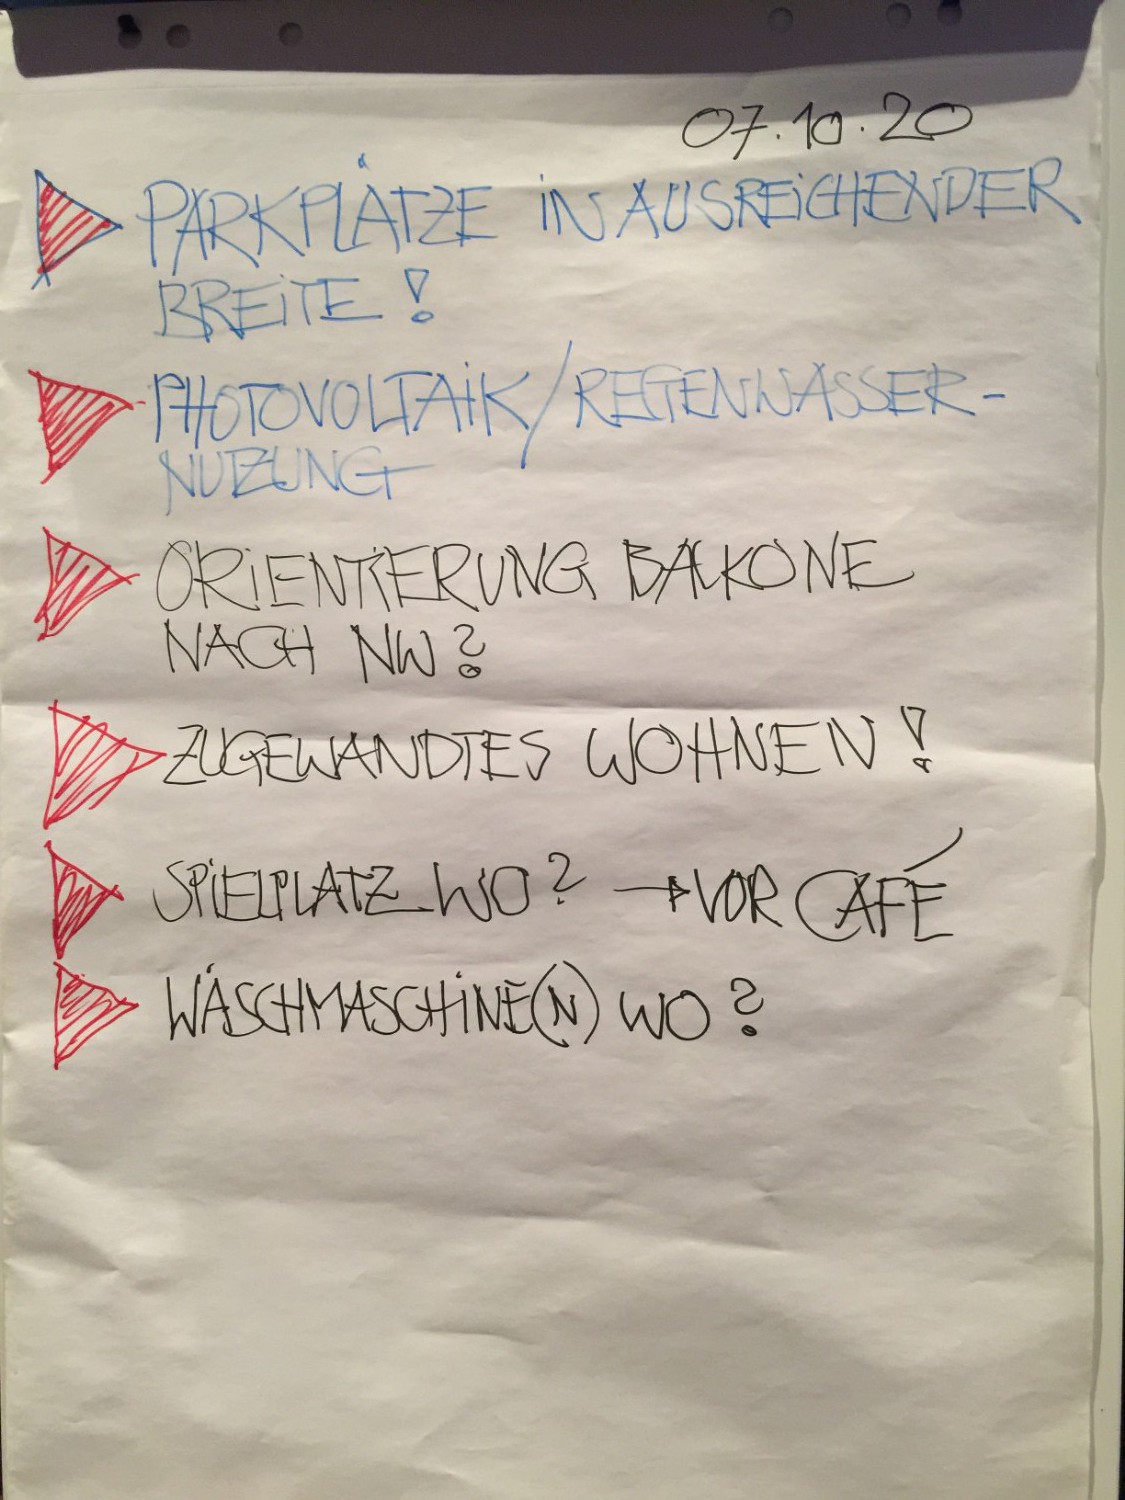 07.10.20
PARKPLÄTZE IN AUSREICHENDER
BREITE!
PHOTOVOLTAIK/REGENWASSER-
NUTZUNG
ORIENTIERUNG BALKONE
NACH NW?
ZUGEWANDTES WOHNEN!
SPIELPLATZ WO? → VOR CAFÉ
WÄSCHMASCHINE(N) WO?